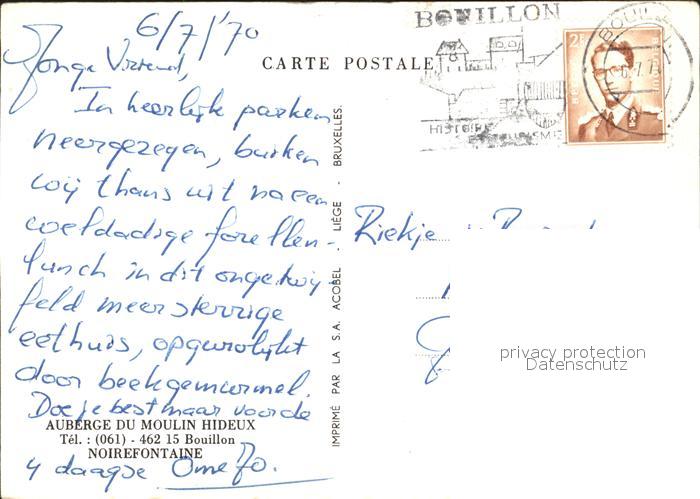 6/7/'70
BOUILLON
CARTE POSTALE
HISTOIRE
TOURISME
2F
BOUILLON
Jonge Vriend,
In heerlijk parken
neergezegen, buiken
wij thans uit na een
weldadige forellen-
lunch in dit ongetwij
feld meersterrige
eethuis, opgevrolijkt
door beekgemurmel.
Doe je best maar voor de
AUBERGE DU MOULIN HIDEUX
Tél. : (061) - 462 15 Bouillon
NOIREFONTAINE
4 daagse Ome Jo.
IMPRIMÉ PAR LA S.A. ACOBEL - LIÈGE - BRUXELLES.
Riekje
privacy protection
Datenschutz